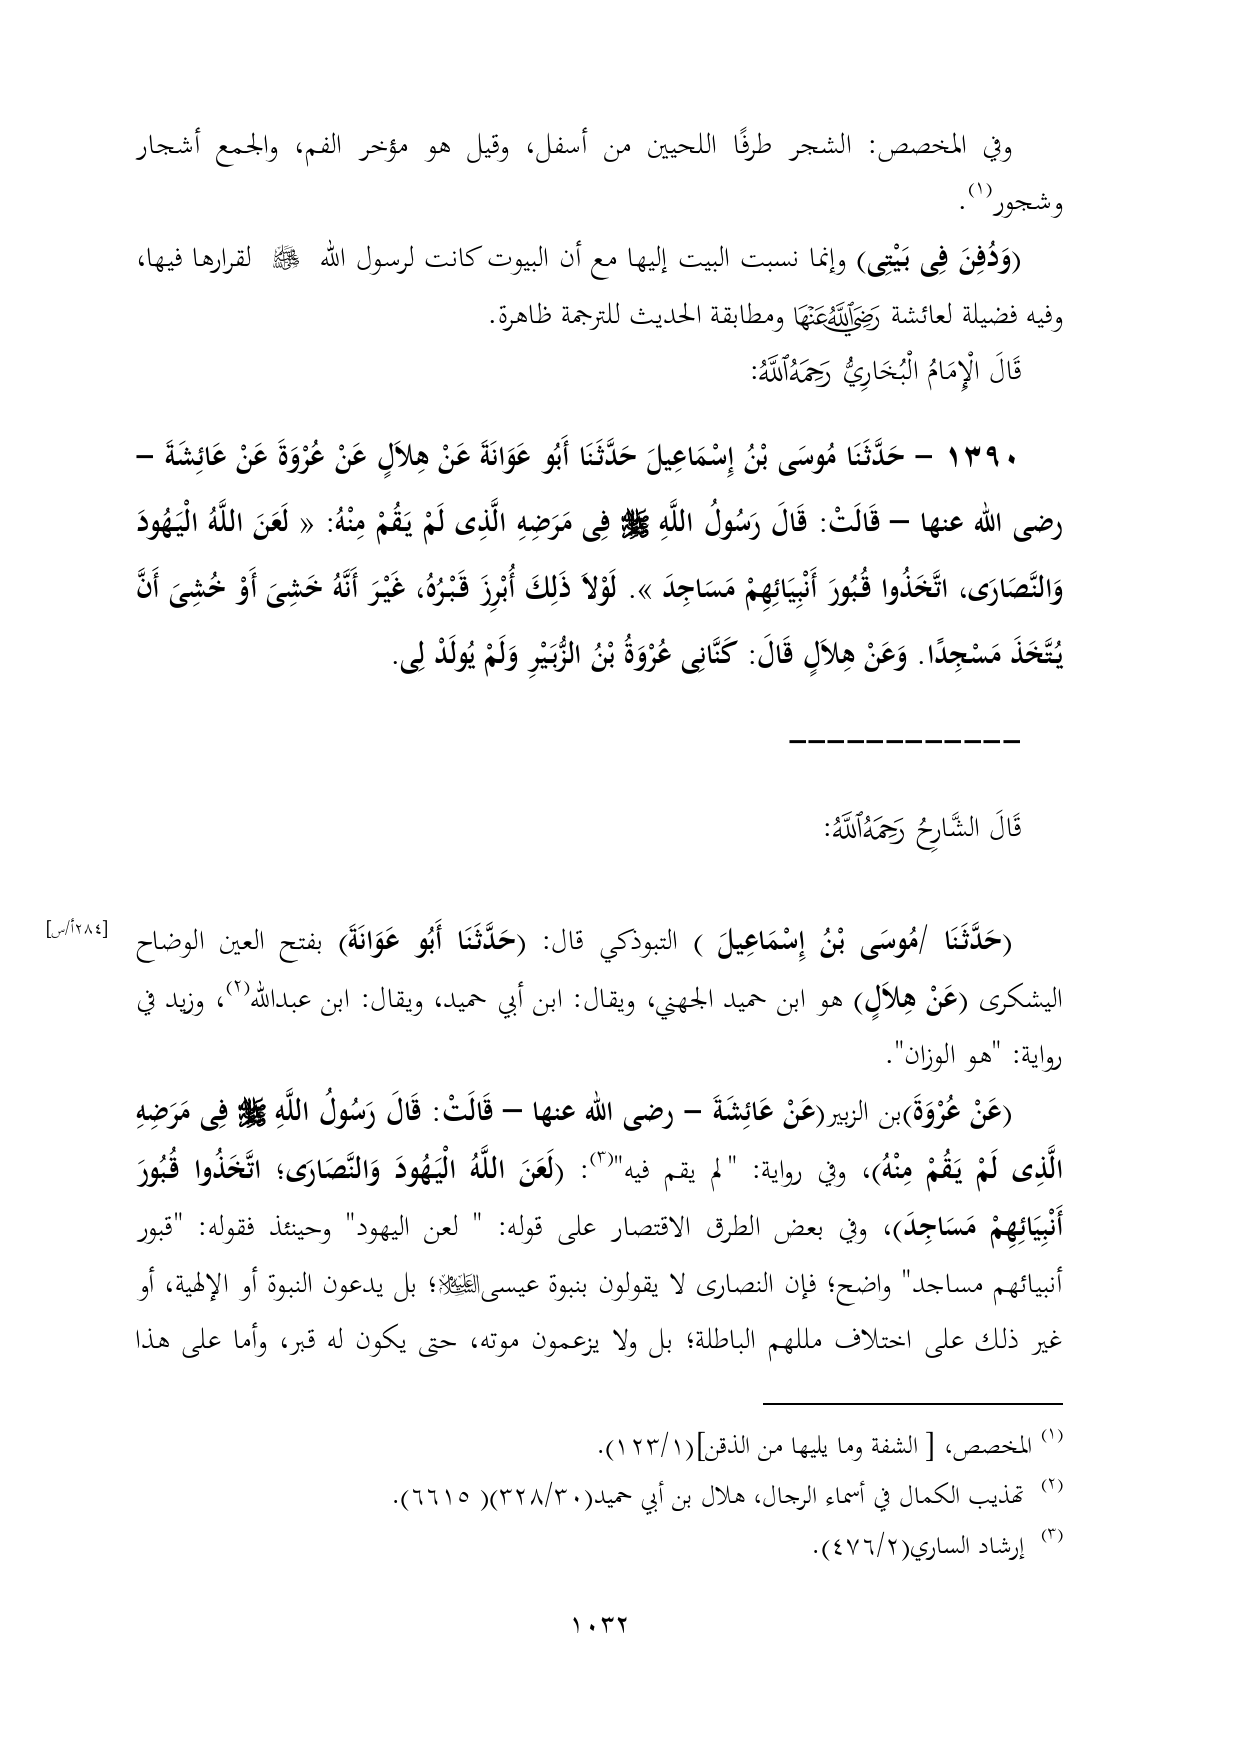 وفي المخصص: الشجر طرفًا اللحيين من أسفل، وقيل هو مؤخر الفم، والجمع أشجار
وشجور(١).
(وَدُفِنَ فِى بَيْتِى) وإنما نسبت البيت إليها مع أن البيوت كانت لرسول الله ﷺ لقرارها فيها،
وفيه فضيلة لعائشة رَضِيَٱللَّهُعَنْهَا ومطابقة الحديث للترجمة ظاهرة.
قَالَ الْإِمَامُ الْبُخَارِيُّ رَحِمَهُٱللَّهُ:
١٣٩٠ – حَدَّثَنَا مُوسَى بْنُ إِسْمَاعِيلَ حَدَّثَنَا أَبُو عَوَانَةَ عَنْ هِلاَلٍ عَنْ عُرْوَةَ عَنْ عَائِشَةَ –
رضى الله عنها – قَالَتْ: قَالَ رَسُولُ اللَّهِ ﷺ فِى مَرَضِهِ الَّذِى لَمْ يَقُمْ مِنْهُ: « لَعَنَ اللَّهُ الْيَهُودَ
وَالنَّصَارَى، اتَّخَذُوا قُبُورَ أَنْبِيَائِهِمْ مَسَاجِدَ ». لَوْلاَ ذَلِكَ أُبْرِزَ قَبْرُهُ، غَيْرَ أَنَّهُ خَشِىَ أَوْ خُشِىَ أَنَّ
يُتَّخَذَ مَسْجِدًا. وَعَنْ هِلاَلٍ قَالَ: كَنَّانِى عُرْوَةُ بْنُ الزُّبَيْرِ وَلَمْ يُولَدْ لِى.
––––––––––––
قَالَ الشَّارِحُ رَحِمَهُٱللَّهُ:
(حَدَّثَنَا /مُوسَى بْنُ إِسْمَاعِيلَ ) التبوذكي قال: (حَدَّثَنَا أَبُو عَوَانَةَ) بفتح العين الوضاح [٢٨٤أ/س]
اليشكرى (عَنْ هِلاَلٍ) هو ابن حميد الجهني، ويقال: ابن أبي حميد، ويقال: ابن عبدالله(٢)، وزيد في
رواية: "هو الوزان".
(عَنْ عُرْوَةَ)بن الزبير(عَنْ عَائِشَةَ – رضى الله عنها – قَالَتْ: قَالَ رَسُولُ اللَّهِ ﷺ فِى مَرَضِهِ
الَّذِى لَمْ يَقُمْ مِنْهُ)، وفي رواية: "لم يقم فيه"(٣): (لَعَنَ اللَّهُ الْيَهُودَ وَالنَّصَارَى؛ اتَّخَذُوا قُبُورَ
أَنْبِيَائِهِمْ مَسَاجِدَ)، وفي بعض الطرق الاقتصار على قوله: " لعن اليهود" وحينئذ فقوله: "قبور
أنبيائهم مساجد" واضح؛ فإن النصارى لا يقولون بنبوة عيسىعليه السلام؛ بل يدعون النبوة أو الإلهية، أو
غير ذلك على اختلاف مللهم الباطلة؛ بل ولا يزعمون موته، حتى يكون له قبر، وأما على هذا
(١) المخصص، [ الشفة وما يليها من الذقن](١٢٣/١).
(٢) تهذيب الكمال في أسماء الرجال، هلال بن أبي حميد(٣٢٨/٣٠)( ٦٦١٥).
(٣) إرشاد الساري(٤٧٦/٢).
١٠٣٢